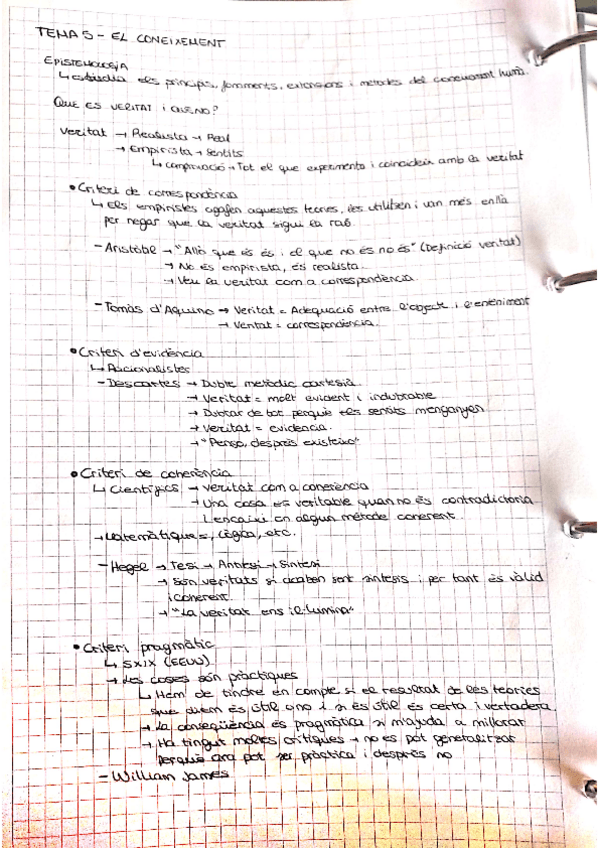 TEMA 5 - EL CONEIXEMENT
EPISTEMOLOGIA
↳ estudia els principis, fonaments, extensions i mètodes del coneixement humà.
QUE ES VERITAT I QUE NO?
Veritat → Realista → Real
→ Empirista → Sentits
↳ comprovació → Tot el que experimento i coincideix amb la veritat
• Criteri de correspondència
↳ Els empiristes agafen aquestes teories, les utilitzen i van més enllà
per negar que la veritat sigui la raó.
- Aristòtal → "Allò que és és i el que no és no és" (Definició veritat)
→ No és empirista, és realista
→ Veu la veritat com a correspondència
- Tomàs d'Aquino → Veritat = Adequació entre l'objecte i l'enteniment
→ Veritat = correspondència.
• Criteri d'evidència
↳ Racionalistes
- Descartes → Dubte metòdic cartesià
→ Veritat = molt evident i indubtable
→ Dubtar de tot perquè els sentits menganyen
→ Veritat = evidencia.
→ "Penso, després existeixo"
• Criteri de coherència
↳ Científics → veritat com a coherència
→ Una cosa es veritable quan no és contradictoria
i encaixi en algun mètode coherent.
→ Matemàtiques, Lògica, etc.
- Hegel → Tesi → Antítesi → Síntesi
→ Són veritats si acaben sent síntesis i per tant és vàlid
i coherent
→ "La veritat ens il·lumina"
• Criteri pragmàtic
↳ SXIX (EEUU)
→ Les coses són pràctiques
↳ Hem de tindre en compte si el resultat de les teories
que diem és útil o no i si és útil és certa i vertadera
→ La conseqüència és pragmàtica si m'ajuda a millorar
→ Ha tingut moltes crítiques → no es pot generalitzar
perquè ara pot ser pràctica i després no
- William James